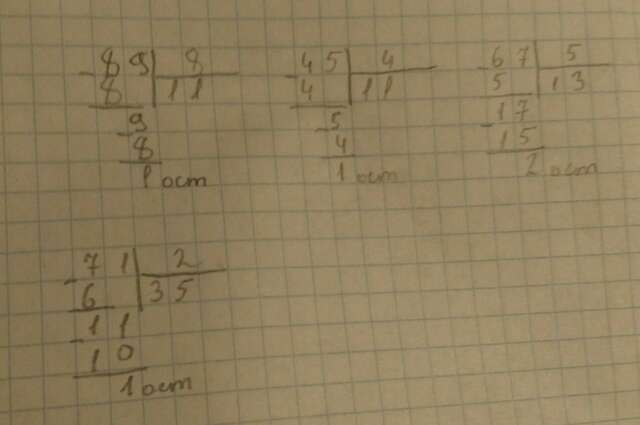 89 8
8 11
9
8
1 ост
45 4
4 11
5
4
1 ост
67 5
5 13
17
15
2 ост
71 2
6 35
11
10
1 ост